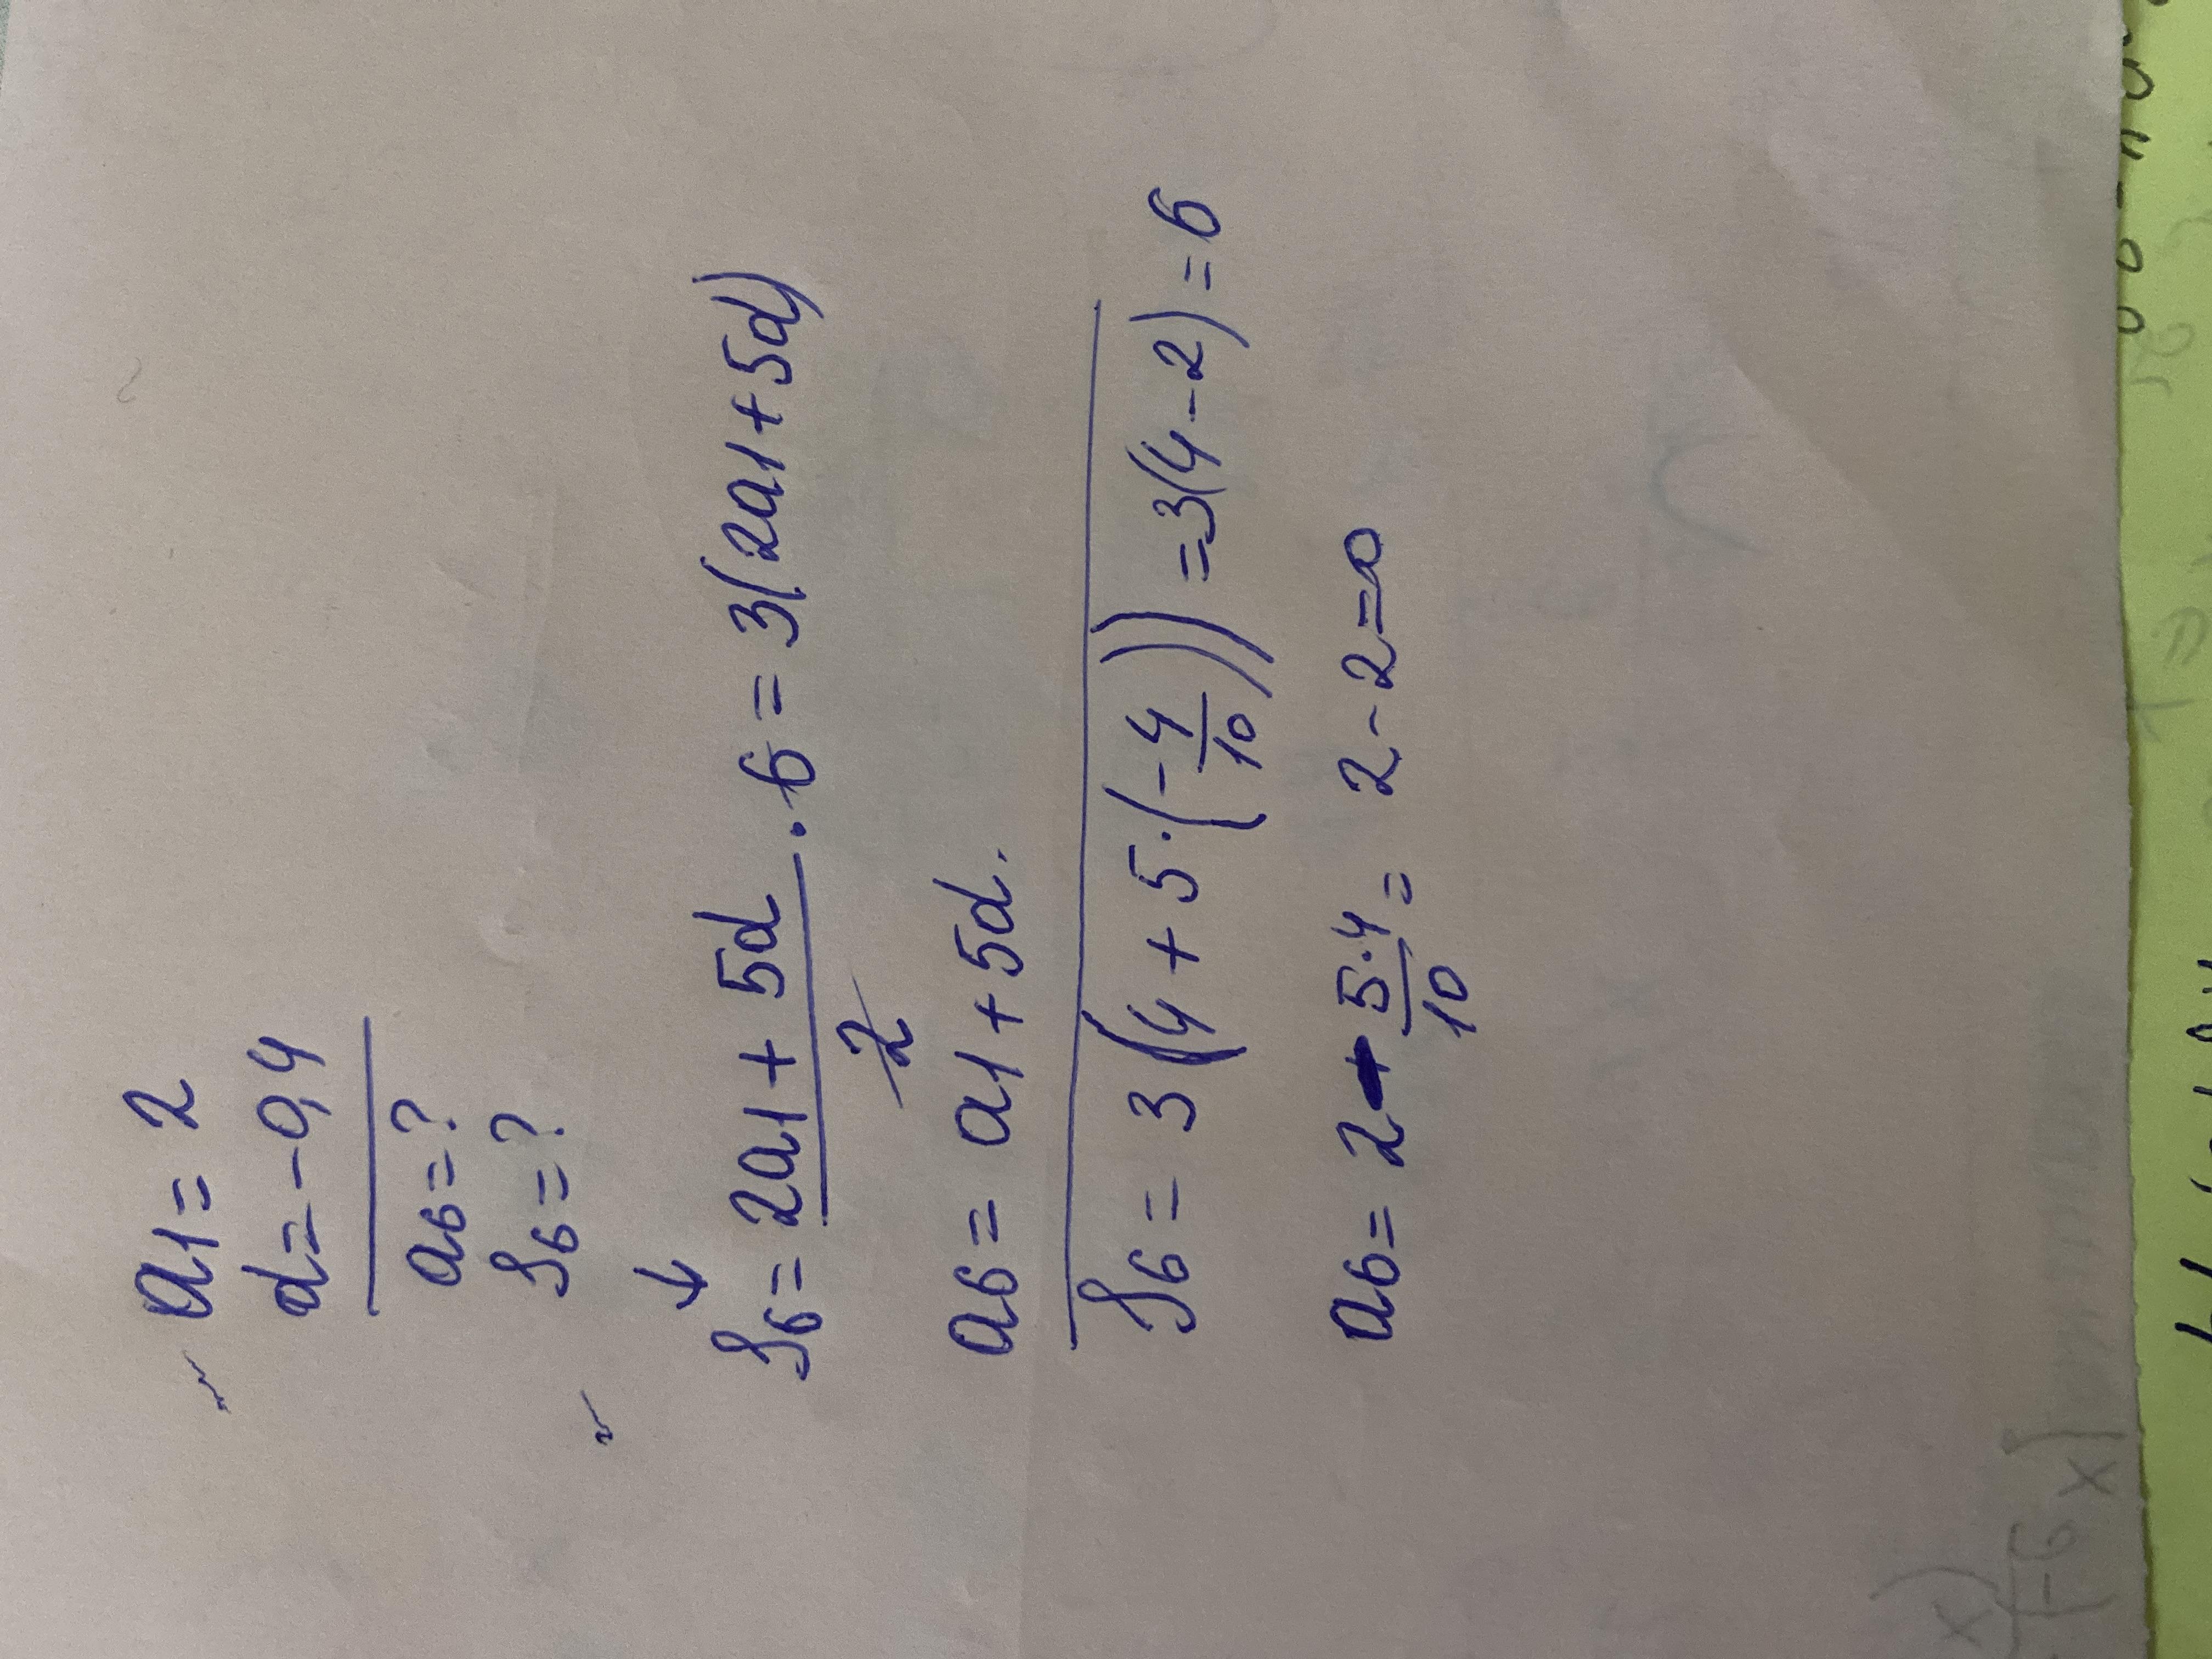 a1 = 2
d = -0,4
a6 = ?
S6 = ?
S6 = 2a1 + 5d / 2 · 6 = 3(2a1 + 5d)
a6 = a1 + 5d.
S6 = 3(4 + 5·(-4/10)) = 3(4-2) = 6
a6 = 2 - 5·4/10 = 2 - 2 = 0